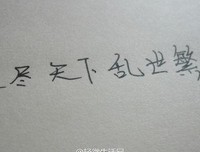 尽天下乱世繁